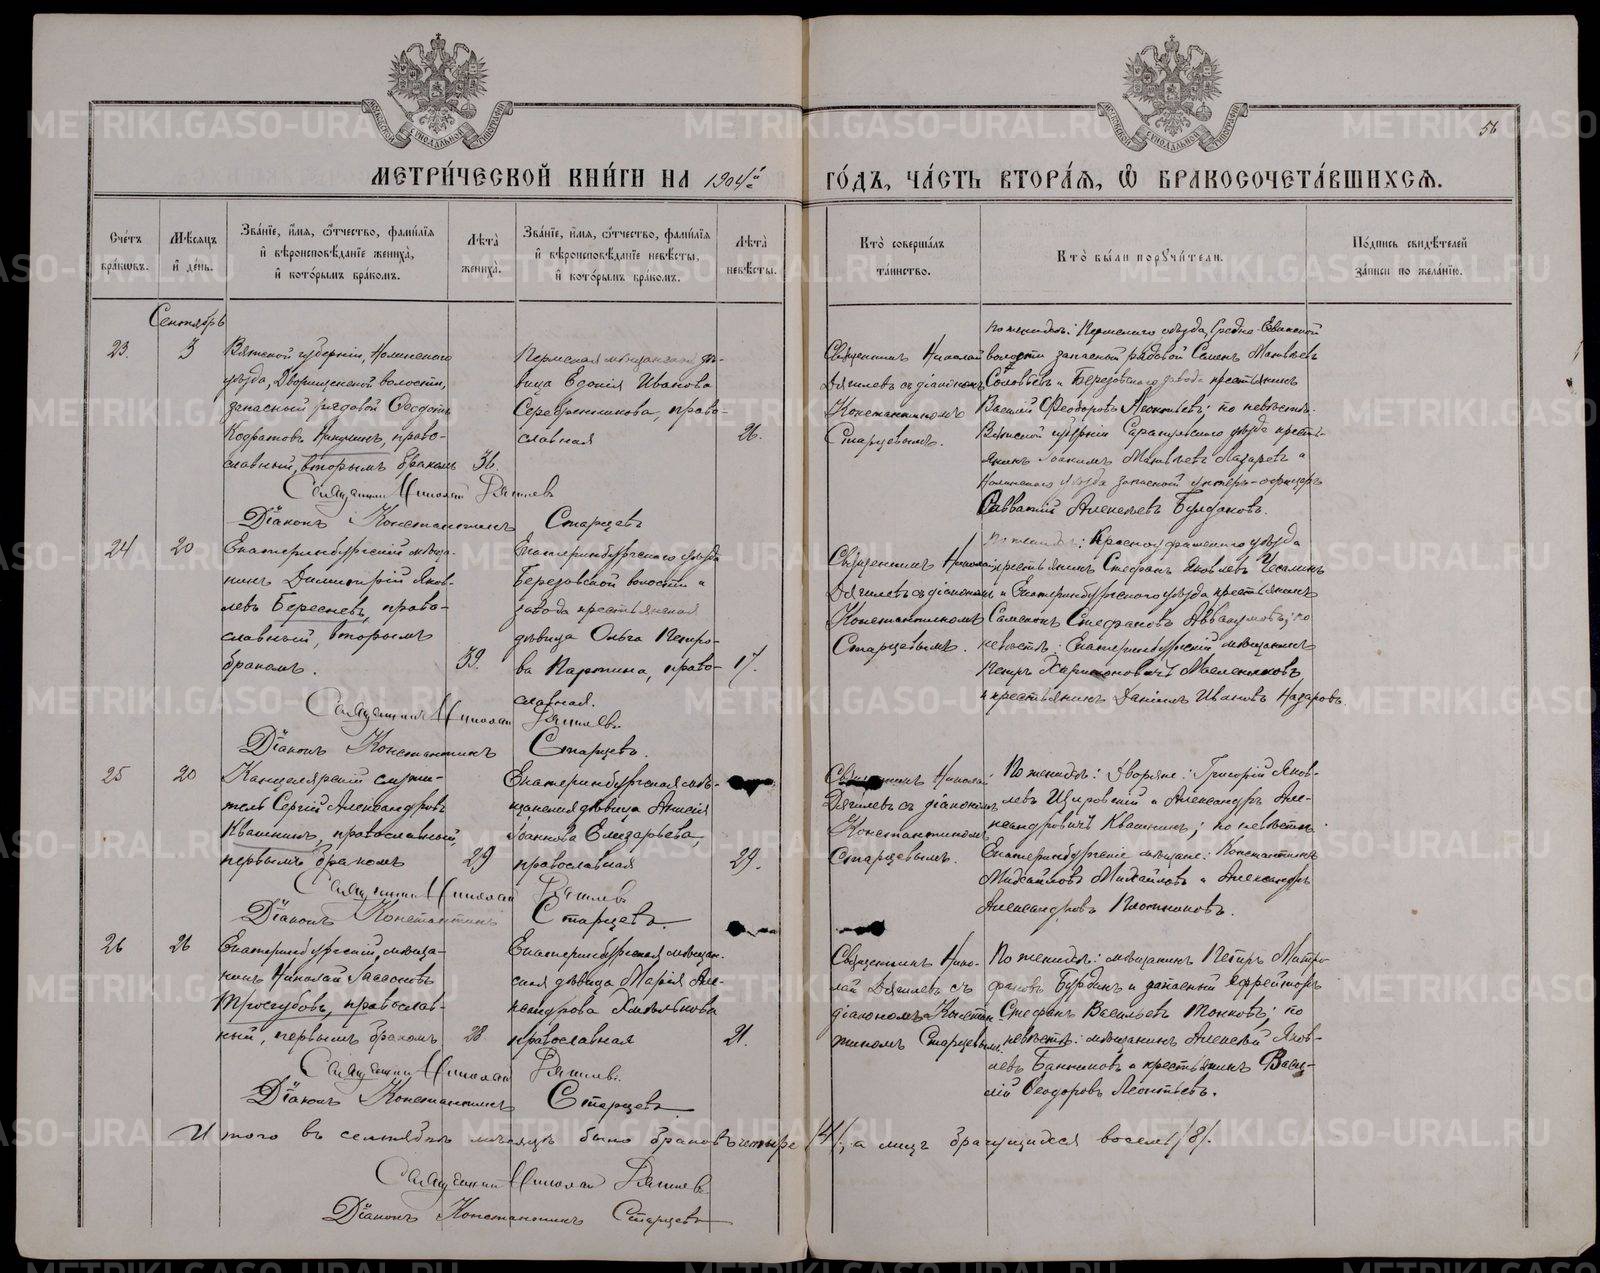 56
МЕТРИ́ЧЕСКОЙ КНИ́ГИ НА 1904й
ГО́ДЪ, ЧА́СТЬ ВТОРА́Я, Ѡ БРАКОСОЧЕТА́ВШИХСЯ.
Сче́тъ бра́кωвъ.
Мѣ́сяцъ и҆ де́нь.
Зва́нїе, и҆́мѧ, ѻ҆́тчество, фами́лїѧ
и҆ вѣроисповѣ́данїе жениха̀,
и҆ кото́рымъ бра́комъ.
Лѣ́та жениха̀.
Зва́нїе, и҆́мѧ, ѻ҆́тчество, фами́лїѧ
и҆ вѣроисповѣ́данїе невѣ́сты,
и҆ кото́рымъ бра́комъ.
Лѣ́та невѣ́сты.
Кто̀ соверша́лъ та́инство.
Кто̀ бы́ли поручи́тели.
По́дпись свидѣ́телей за́писи по жела́нїю.
Сентябрь
23.
3
Вятской губерніи, Нолинскаго
уѣзда, волости,
запасный рядовой Ѳеодотъ
православный, вторымъ бракомъ
36.
Пермская мѣщанская дѣ-
вица Евдокія Иванова
Серебренникова, право-
славная
26.
Священникъ Николай
Дягилевъ съ діакономъ
Константиномъ
Старцевымъ.
по женихѣ: Пермскаго уѣзда,
волости запасный рядовой Семенъ Матвѣевъ
Соловьевъ и Березовскаго завода крестьянинъ
Василій Ѳеодоровъ Леонтьевъ; по невѣстѣ:
Вятской губерніи Сарапульскаго уѣзда кресть-
янинъ Іоакимъ Матвѣевъ Лазаревъ и
Нолинскаго уѣзда запасной унтеръ-офицеръ
Савватій Алексѣевъ Булдаковъ.
Священникъ Николай Дягилевъ
Діаконъ Константинъ Старцевъ
24
20
Екатеринбургскій мѣща-
нинъ Димитрій Яков-
левъ Береснев, право-
славный, вторымъ
бракомъ.
39.
Екатеринбургскаго уѣзда
Березовской волости и
завода крестьянская
дѣвица Ольга Петро-
ва , право-
славная.
17.
Священникъ Николай
Дягилевъ съ діакономъ
Константиномъ
Старцевымъ.
по женихѣ: Красноуфимскаго уѣзда
крестьянинъ Стефанъ Яковлевъ
и Екатеринбургскаго уѣзда крестьянинъ
Стефановъ Аввакумовъ; по
невѣстѣ: Екатеринбургскій мѣщанинъ
Петръ Харитоновичъ Масленниковъ
и крестьянинъ Даніилъ Ивановъ Назаровъ.
Священникъ Николай Дягилевъ.
Діаконъ Константинъ Старцевъ.
25
20
Канцелярскій служи-
тель Сергій Александровъ
Квашнинъ, православный,
первымъ бракомъ
29
Екатеринбургская мѣ-
щанская дѣвица Анисія
Іоаннова Елизарьева,
православная
29.
Священникъ Николай
Дягилевъ съ діакономъ
Константиномъ
Старцевымъ.
По женихѣ: дворяне: Григорій Яков-
левъ и Александръ Але-
ксандровичъ Квашнинъ; по невѣстѣ:
Екатеринбургскіе мѣщане: Константинъ
Михайловъ Михайловъ и Александръ
Александровъ Плотниковъ.
Священникъ Николай Дягилевъ
Діаконъ Константинъ Старцевъ
26
26
Екатеринбургскій мѣща-
нинъ Николай
Троегубовъ, православ-
ный, первымъ бракомъ
28
Екатеринбургская мѣщан-
ская дѣвица Марія Але-
ксандрова
православная
21.
Священникъ Нико-
лай Дягилевъ съ
діакономъ Констан-
тиномъ Старцевымъ.
По женихѣ: мѣщанинъ Петръ Митро-
фановъ Бурдинъ и запасный ефрейторъ
Стефанъ Васильевъ Тонковъ; по
невѣстѣ: мѣщанинъ Алексѣй Яков-
левъ Банниковъ и крестьянинъ Васи-
лій Ѳеодоровъ Леонтьевъ.
Священникъ Николай Дягилев.
Діаконъ Константинъ Старцевъ
Итого въ сентябрѣ мѣсяцѣ было браковъ четыре /4/, а лицъ брачущихся восемь /8/.
Священникъ Николай Дягилевъ
Діаконъ Константинъ Старцевъ
METRIKI.GASO-URAL.RU